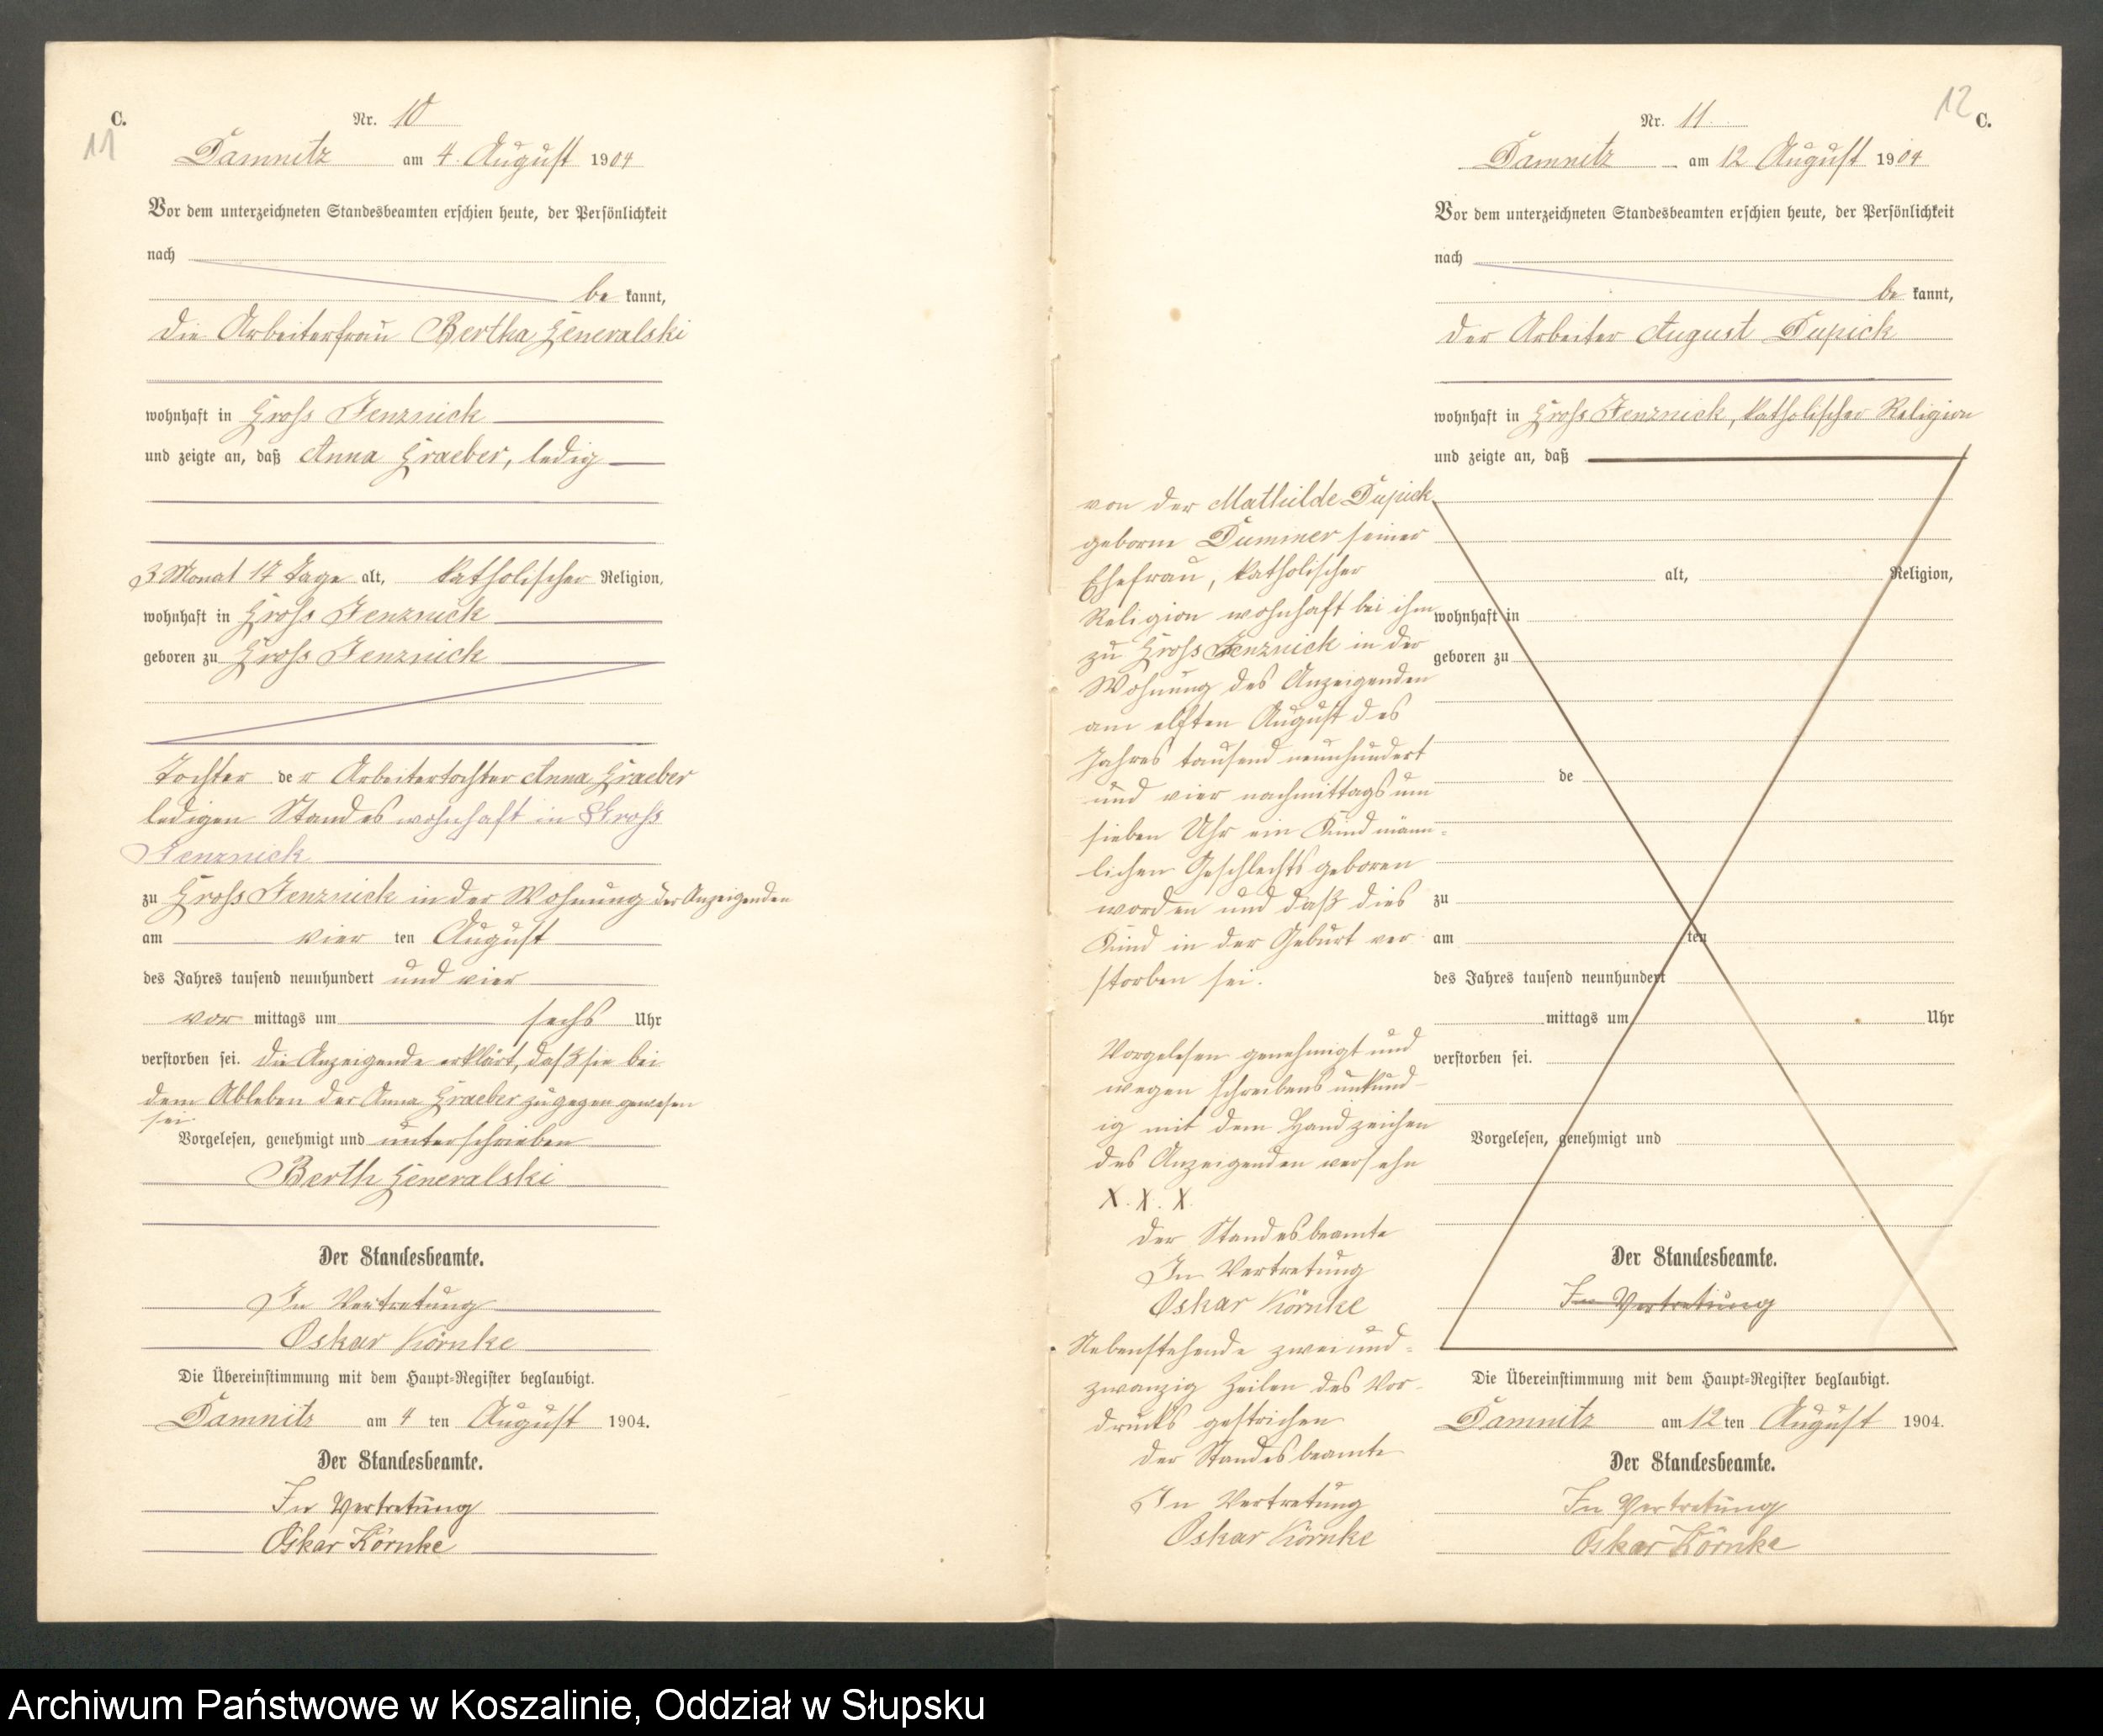 C.
11
Nr. 10
Damnitz am 4. August 1904
Vor dem unterzeichneten Standesbeamten erschien heute, der Persönlichkeit
nach
be kannt,
die Arbeiterfrau Bertha Generalski
wohnhaft in Gross Jenznick
und zeigte an, daß Anna Graeber, ledig
3 Monat 17 Tage alt, katholischer Religion,
wohnhaft in Gross Jenznick
geboren zu Gross Jenznick
Tochter de r Arbeitertochter Anna Graeber
ledigen Standes wohnhaft in Gross
Jenznick
zu Gross Jenznick in der Wohnung der Anzeigenden
am vier ten August
des Jahres tausend neunhundert und vier
vor mittags um sechs Uhr
verstorben sei. die Anzeigende erklärt, daß sie bei
dem Ableben der Anna Graeber zugegen gewesen
sei.
Vorgelesen, genehmigt und unterschrieben
Berth Generalski
Der Standesbeamte.
In Vertretung
Oskar Körnke
Die Übereinstimmung mit dem Haupt-Register beglaubigt.
Damnitz am 4 ten August 1904.
Der Standesbeamte.
In Vertretung
Oskar Körnke
12
C.
Nr. 11.
Damnitz am 12 August 1904
Vor dem unterzeichneten Standesbeamten erschien heute, der Persönlichkeit
nach
be kannt,
der Arbeiter August Dupick
wohnhaft in Gross Jenznick, katholischer Religion
und zeigte an, daß
von der Mathilde Dupick
geborne Dummer seiner
Ehefrau, katholischer
Religion wohnhaft bei ihm
zu Gross Jenznick in der
Wohnung des Anzeigenden
am elften August des
Jahres tausend neunhundert
und vier nachmittags um
sieben Uhr ein Kind männ-
lichen Geschlechts geboren
worden und daß dies
Kind in der Geburt ver
storben sei.
Vorgelesen genehmigt und
wegen schreibens unkund-
ig mit dem Handzeichen
des Anzeigenden versehn
X. X. X.
der Standesbeamte
In Vertretung
Oskar Körnke
Nebenstehende zweiund-
zwanzig Zeilen des Vor-
drucks gestrichen
der Standesbeamte
In Vertretung
Oskar Körnke
alt, Religion,
wohnhaft in
geboren zu
de
zu
am ten
des Jahres tausend neunhundert
mittags um Uhr
verstorben sei.
Vorgelesen, genehmigt und
Der Standesbeamte.
In Vertretung
Die Übereinstimmung mit dem Haupt-Register beglaubigt.
Damnitz am 12 ten August 1904.
Der Standesbeamte.
In Vertretung
Oskar Körnke
Archiwum Państwowe w Koszalinie, Oddział w Słupsku